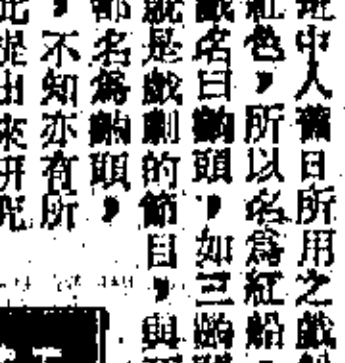 班中人舊日所用之戲
紅色，所以名為紅船
戲名曰齣頭，如三齣
就是戲劇的節目，與
都名為齣頭，
，不知亦有所
出來研究